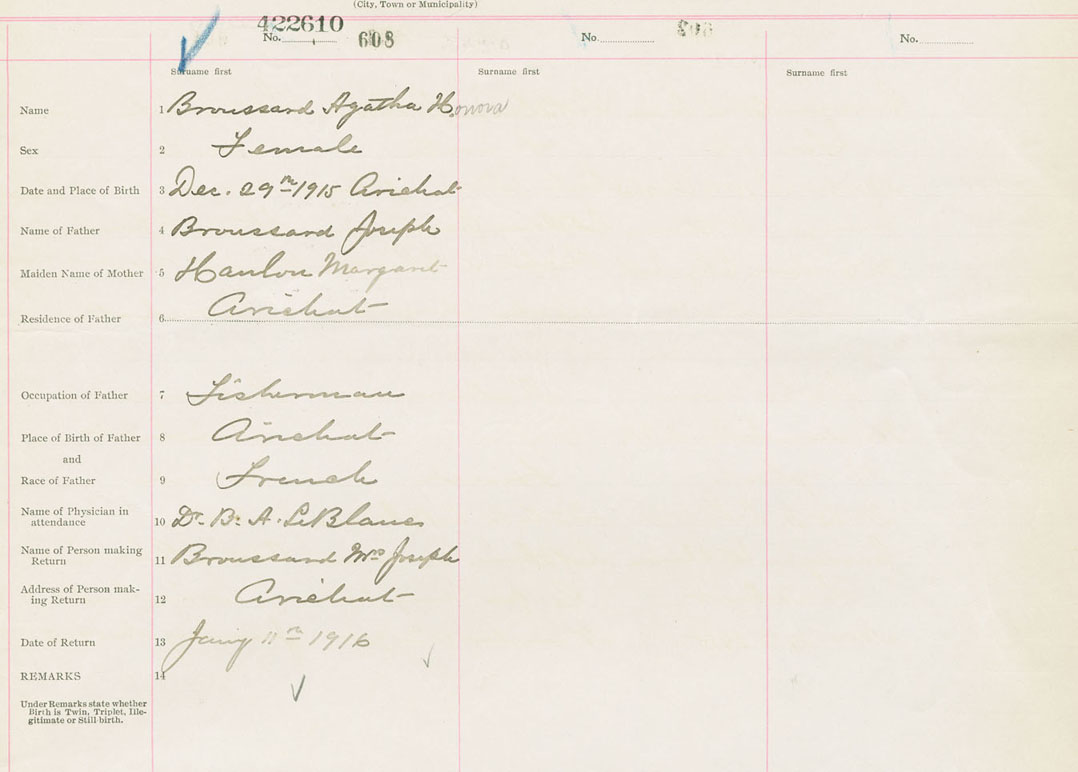 (City, Town or Municipality)
422610
No. 608
No.
No.
Surname first
Surname first
Surname first
Name 1 Broussard Agatha Honora
Sex 2 Female
Date and Place of Birth 3 Dec. 29th 1915 Arichat
Name of Father 4 Broussard Joseph
Maiden Name of Mother 5 Hanlon Margaret
Residence of Father 6 Arichat
Occupation of Father 7 Fisherman
Place of Birth of Father 8 Arichat
and
Race of Father 9 French
Name of Physician in
attendance 10 Dr. B. A. LeBlanc
Name of Person making
Return 11 Broussard Mrs Joseph
Address of Person mak-
ing Return 12 Arichat
Date of Return 13 Jany 11th 1916
REMARKS 14
Under Remarks state whether
Birth is Twin, Triplet, Ille-
gitimate or Still-birth.